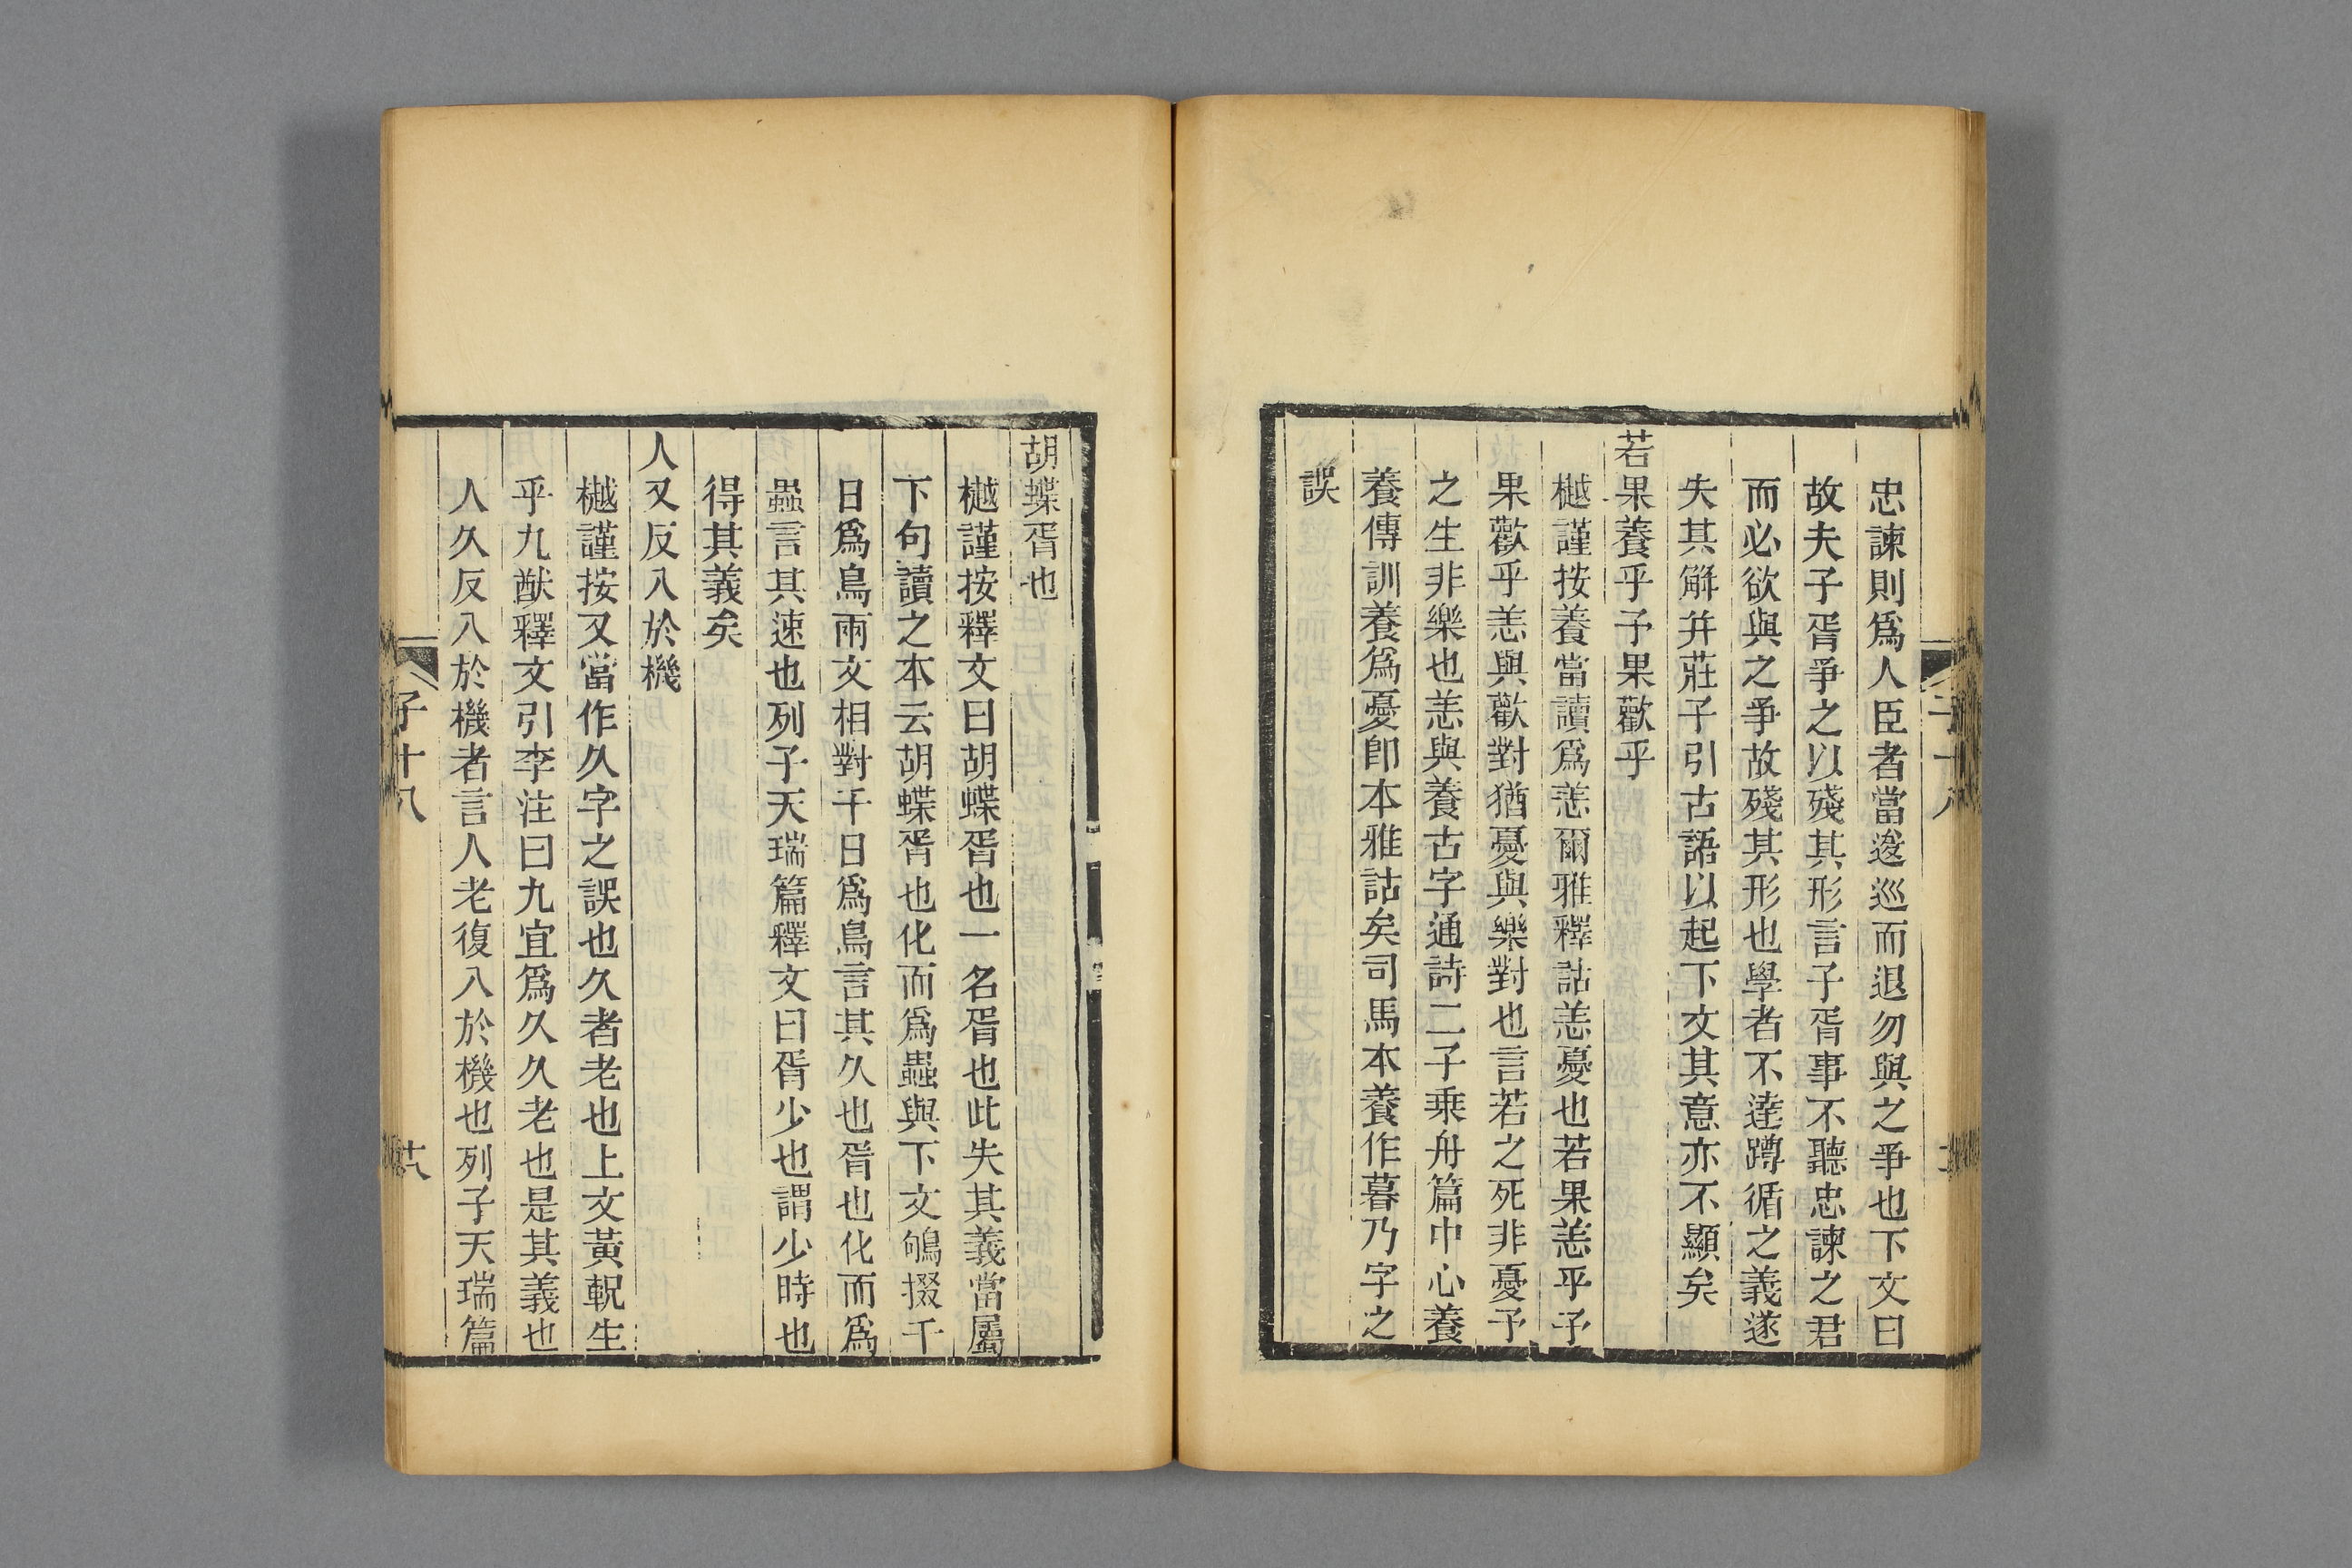 忠諫則爲人臣者當逡巡而退勿與之爭也下文曰
故夫子胥爭之以殘其形言子胥事不聽忠諫之君
而必欲與之爭故殘其形也學者不達蹲循之義遂
失其解幷莊子引古語以起下文其意亦不顯矣
若果養乎予果歡乎
樾謹按養當讀爲恙爾雅釋詁恙憂也若果恙乎予
果歡乎恙與歡對猶憂與樂對也言若之死非憂予
之生非樂也恙與養古字通詩二子乘舟篇中心養
養傳訓養爲憂卽本雅詁矣司馬本養作暮乃字之
誤
胡蝶胥也
樾謹按釋文曰胡蝶胥也一名胥也此失其義當屬
下句讀之本云胡蝶胥也化而爲蟲與下文鴝掇千
日爲鳥兩文相對千日爲鳥言其久也胥也化而爲
蟲言其速也列子天瑞篇釋文曰胥少也謂少時也
得其義矣
人又反入於機
樾謹按又當作久字之誤也久者老也上文黃軦生
乎九猷釋文引李注曰九宜爲久久老也是其義也
人久反入於機者言人老復入於機也列子天瑞篇
子十八
廿八